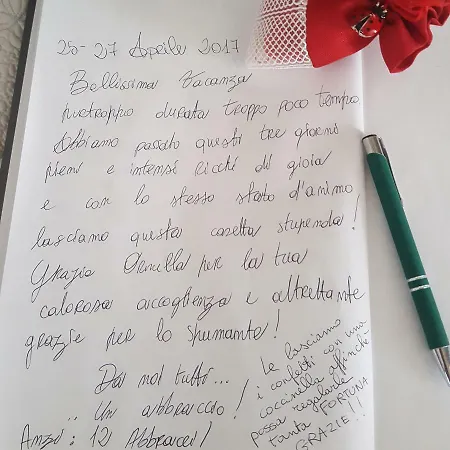 25-27 Aprile 2017
Bellissima Vacanza
purtroppo durata troppo poco tempo
Abbiamo passato questi tre giorni
pieni e intensi ricchi di gioia
e con lo stesso stato d'animo
lasciamo questa casetta stupenda!
Grazie Ornella per la tua
calorosa accoglienza e altrettante
grazie per lo spumante!
Da noi tutti...
.. Un abbraccio!
Anzi: 12 Abbracci!
Le lasciamo
i confetti con una
coccinella affinchè
possa regalarle
tanta FORTUNA
GRAZIE!!